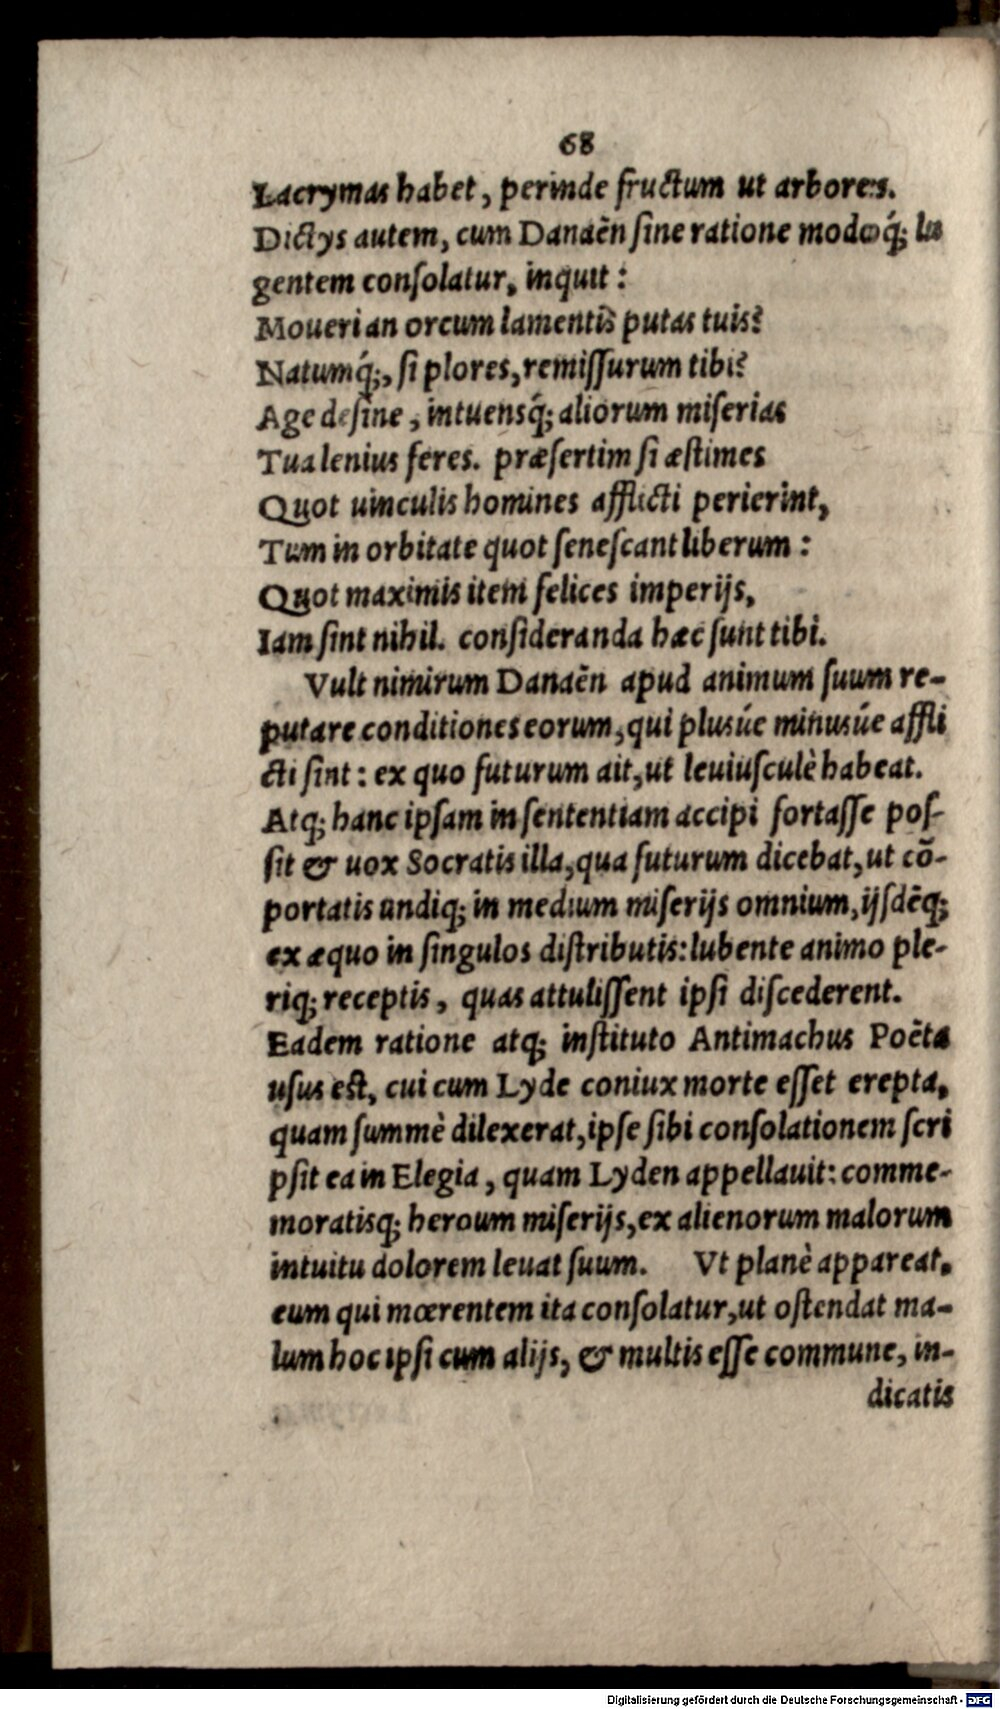 68
Lacrymas habet, perinde fructum ut arbores.
Dictys autem, cum Danaẽn ſine ratione modoq́; lu
gentem conſolatur, inquit:
Moueri an orcum lamentis putas tuis?
Natumq́;, ſi plores, remiſſurum tibi?
Age deſine, intuensq́; aliorum miſerias
Tua lenius feres. præſertim ſi æſtimes
Quot uinculis homines afflicti perierint,
Tum in orbitate quot ſeneſcant liberum:
Quot maximis item felices imperijs,
Iam ſint nihil. conſideranda hæc ſunt tibi.
Vult nimirum Danaẽn apud animum ſuum re-
putare conditiones eorum, qui plusúe minusúe affli
cti ſint: ex quo futurum ait, ut leuiusculè habeat.
Atq; hanc ipſam in ſententiam accipi fortaſſe poſ-
ſit & uox Socratis illa, qua futurum dicebat, ut cõ-
portatis undiq; in medium miſerijs omnium, ijſdẽq;
ex æquo in ſingulos diſtributis: lubente animo ple-
riq; receptis, quas attuliſſent ipſi diſcederent.
Eadem ratione atq; inſtituto Antimachus Poẽta
uſus eſt, cui cum Lyde coniux morte eſſet erepta,
quam ſummè dilexerat, ipſe ſibi conſolationem ſcri
pſit ea in Elegia, quam Lyden appellauit: comme-
moratisq; heroum miſerijs, ex alienorum malorum
intuitu dolorem leuat ſuum. Vt planè appareat,
eum qui mœrentem ita conſolatur, ut oſtendat ma-
lum hoc ipſi cum alijs, & multis eſſe commune, in-
dicatis
Digitalisierung gefördert durch die Deutsche Forschungsgemeinschaft - DFG